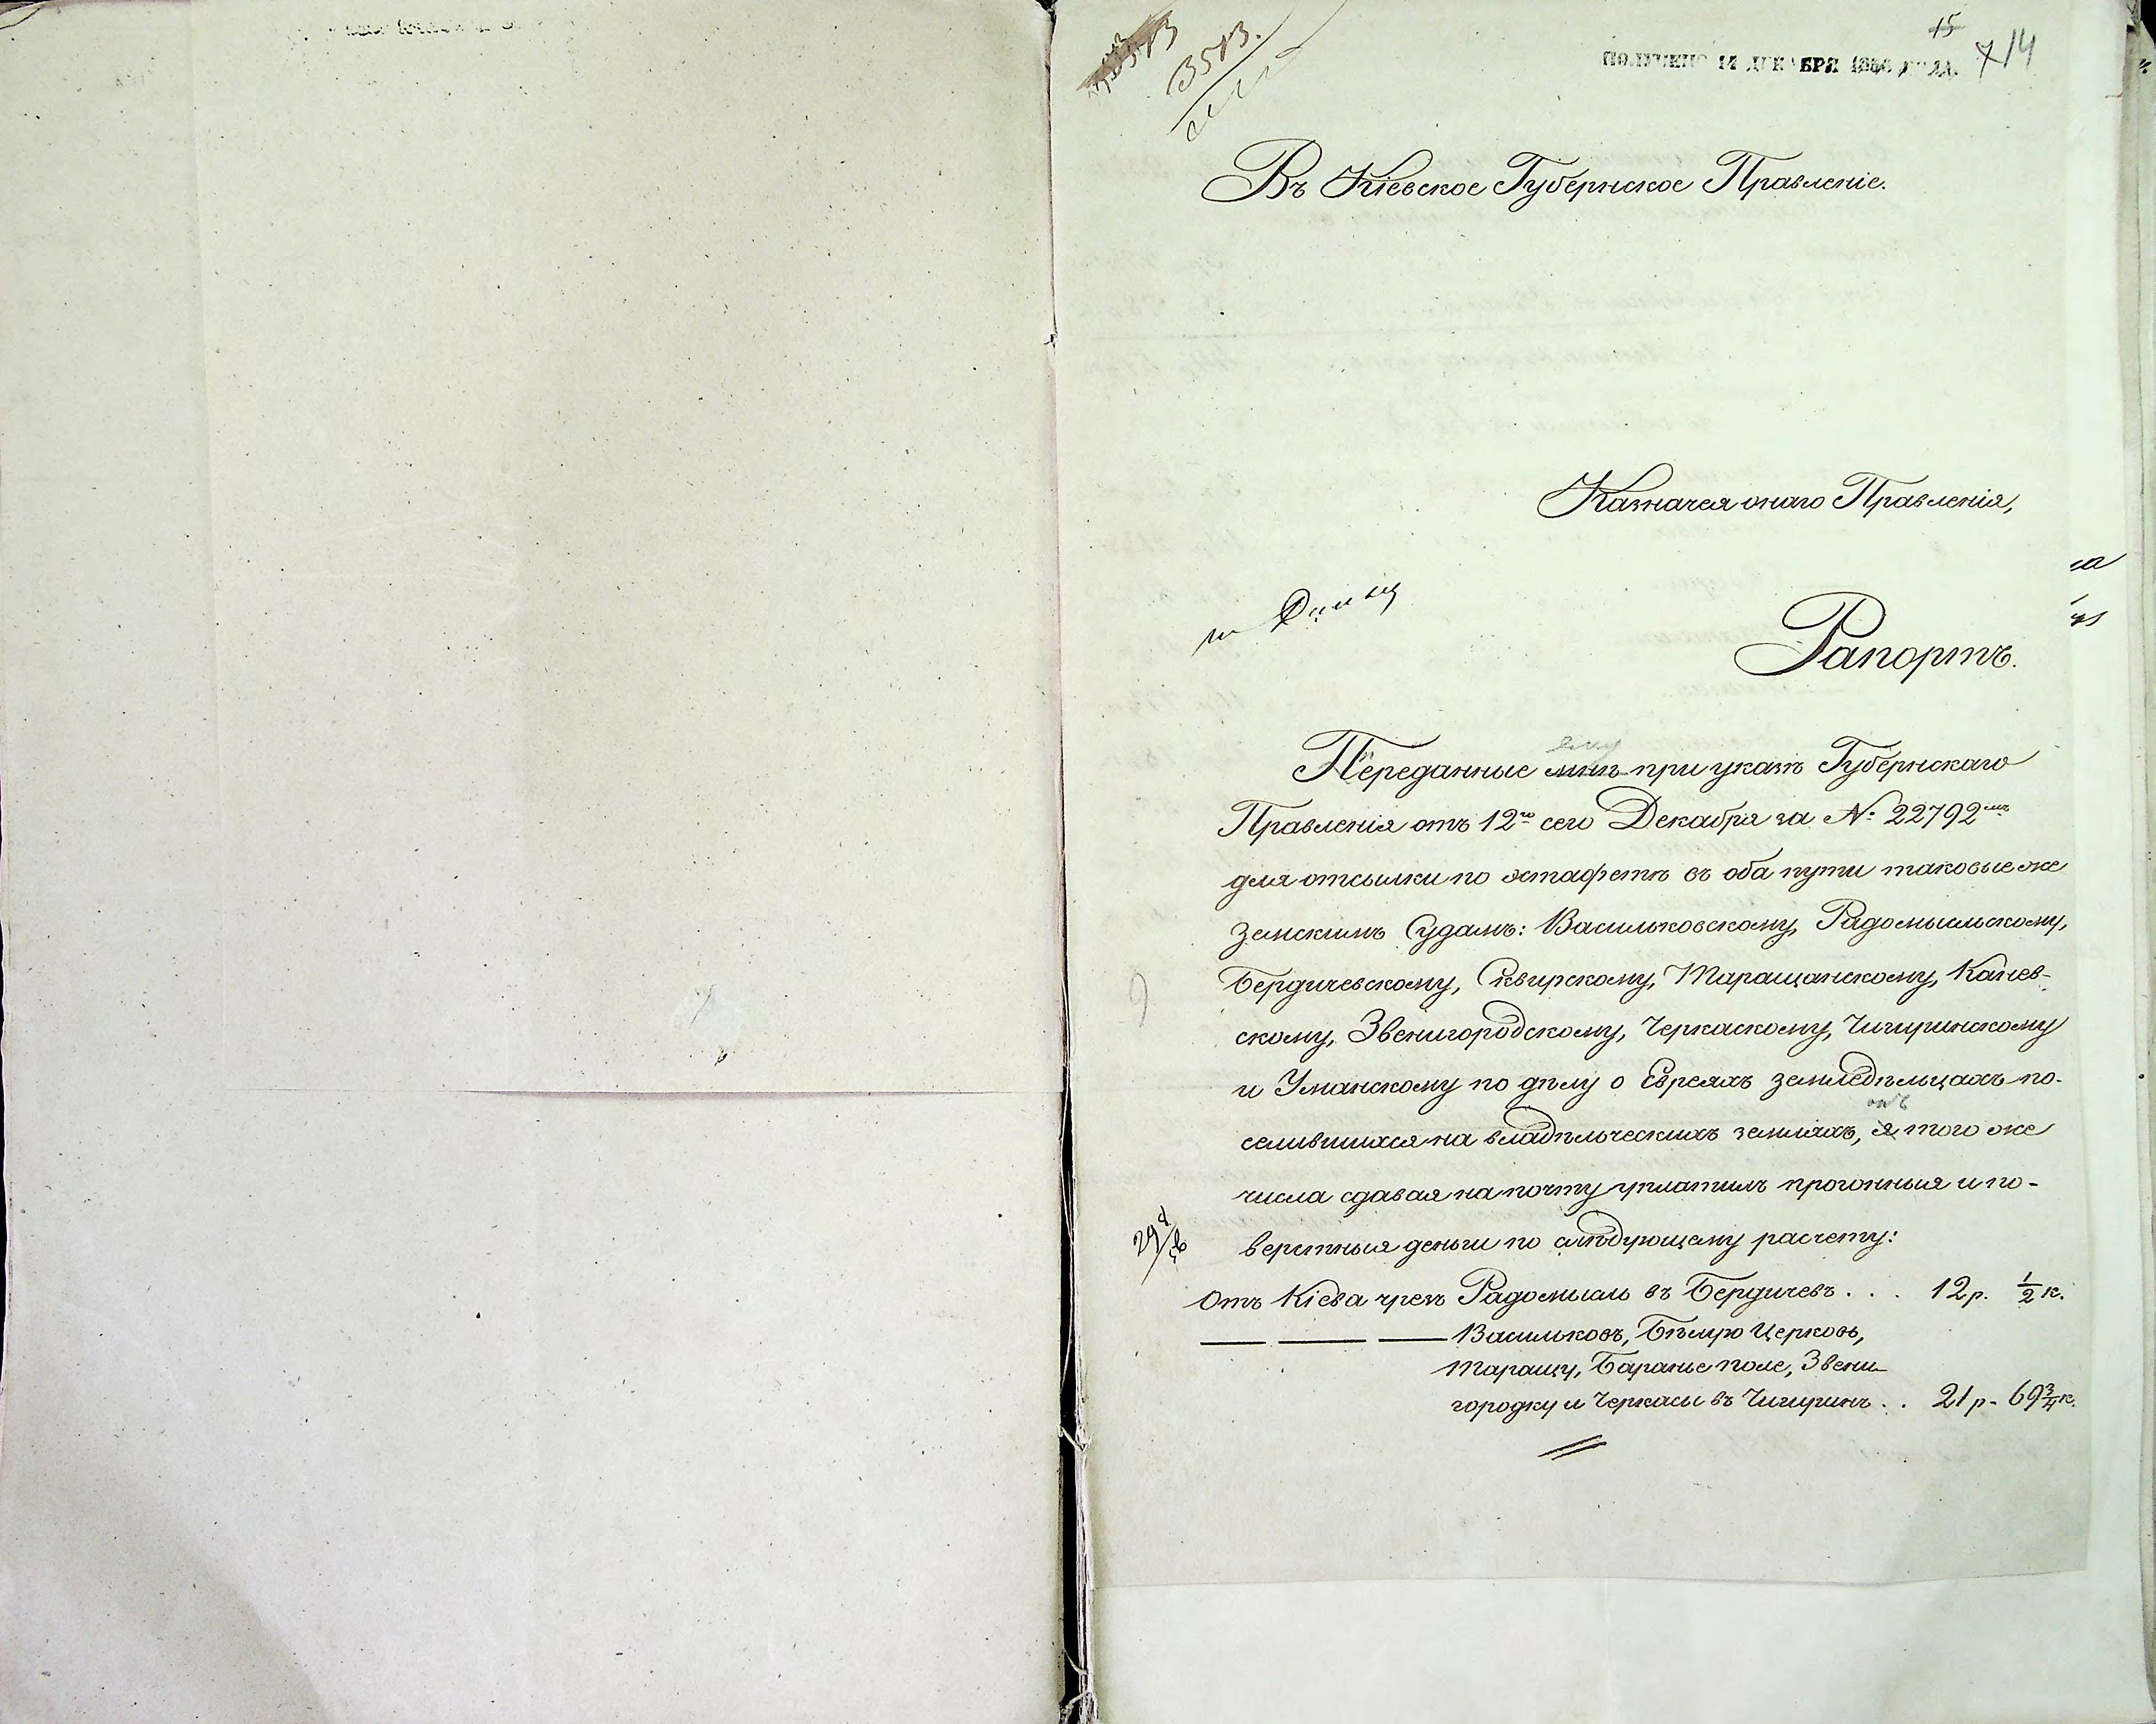 15
714
3513.
ПОЛУЧЕНО 14 ДЕКАБРЯ ГОДА.
Въ Кіевское Губернское Правленіе.
Казначея онаго Правленія,
Рапортъ.
ему
Переданные мнѣ при указѣ Губернскаго
Правленія отъ 12го сего Декабря за №: 22792мъ
для отсылки по эстафетѣ въ оба пути таковые же
Земскимъ Судамъ: Васильковскому, Радомысльскому,
Бердичевскому, Сквирскому, Таращанскому, Канев-
скому, Звенигородскому, Черкаскому, Чигиринскому
и Уманскому по дѣлу о Евреяхъ земледѣльцахъ по-
онъ
селившихся на владѣльческихъ земляхъ, я того же
числа сдавая на почту уплатилъ прогонныя и по-
верстныя деньги по слѣдующему расчету:
Отъ Кіева чрезъ Радомысль въ Бердичевъ . . . 12 р. ½ к.
— — — Васильковъ, Бѣлую Церковь,
Таращу, Баранье поле, Звени-
городку и Черкасы въ Чигиринъ . . 21 р. 69¾ к.